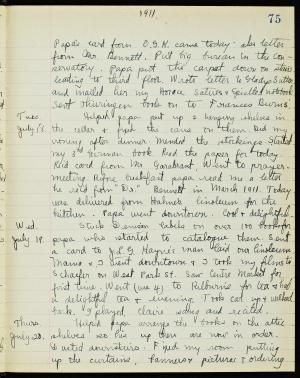 1911.
75
Papa's card from O.S.K. came today. Also letter
from Mr. Bennett. Put big bureau in the con-
servatory. Papa put the carpet down on stairs
leading to third floor. Wrote letter to Gladys
and mailed her my Horace, Satires + Epistles notebook
Sent Thüringen book on to Frances Burns.
Tues. Helped papa put up a hanging shelves in
July 18. the cellar & put the cans on them. Did my
ironing after dinner. Mended the stockings. Started
my 3rd. Read the paper for today
Red card from Mr. Went to prayer-
meeting. Before breakfast papa read me a letter
he rec'd from "Dr." Bennett in March 1911. Today
was delivered from Hahne's linoleum for the
kitchen. Papa went downtown. Cool & delightful.
Wed. Stuck Dennison labels on over 100 books for
July 19. papa who started to catalogue them. Sent
a card to J.L.G. Hayne's man laid our linoleum
Mama & I went downtown & I took my films to
Schaefer on West Park St. Saw Centre Market for
first time. Went (we 4) to Kilburn's for tea & had
a delightful tea & evening. Took car up & walked
back. I played, Claire sang and recited.
Thurs. Helped papa arrange the books on the attic
July 20. shelves so his up there are now in order.
Dusted downstairs. Fixed my room putting
up the curtains, banners & pictures & ordering